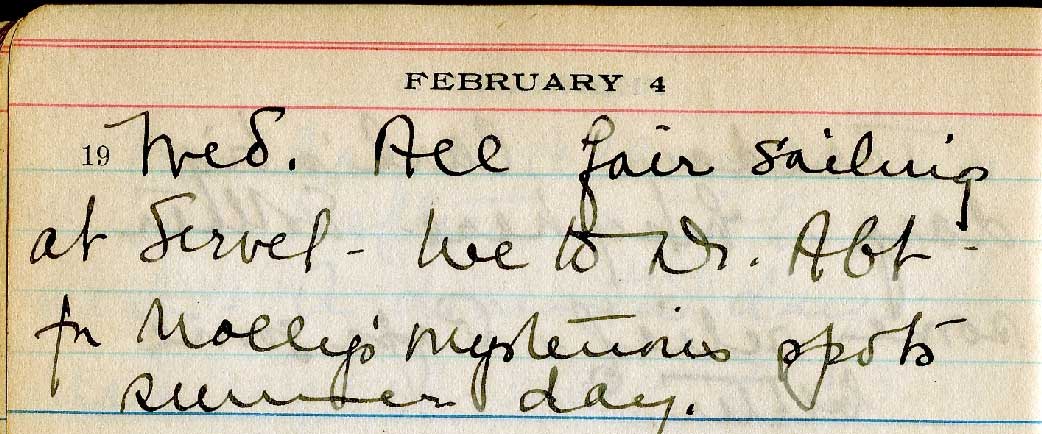 FEBRUARY 4
19 Wed. All fair sailing
at Servel - We to Dr. Abt -
for Molly's mysterious spots
summer day.